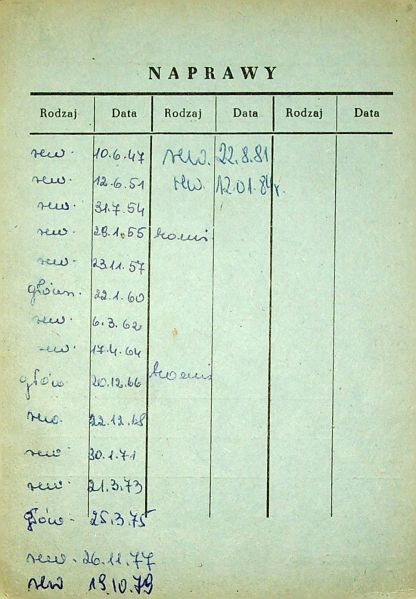 NAPRAWY
Rodzaj Data Rodzaj Data Rodzaj Data
rew. 10.6.47 rew. 22.8.81
rew. 12.6.51 rew. 12.01.84r.
rew. 31.7.54
rew. 29.1.55
rew. 23.11.57
główn. 22.1.60
rew. 6.3.62
rew 17.4.64
głów 20.12.66
rew. 22.12.68
rew. 30.1.71
rew. 21.3.73
głów. 25.3.75
rew. 26.11.77
rew 19.10.79